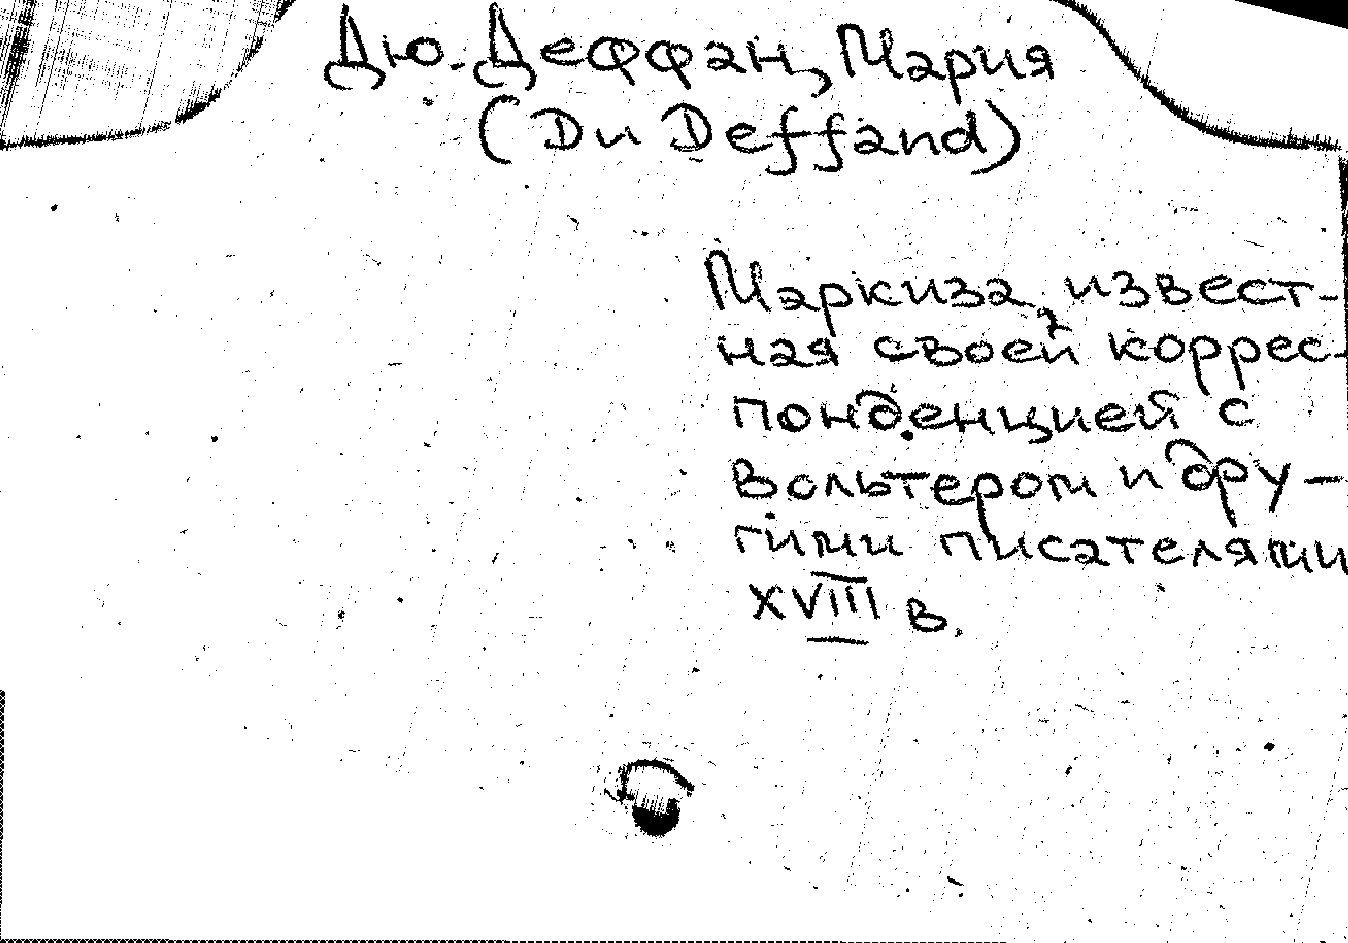 Дю-Деффан, Мария
(Du Deffand)
Маркиза, извест-
ная своей коррес-
понденцией с
Вольтером и дру-
гими писателями
XVIII в.